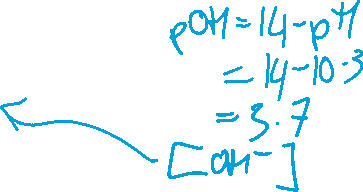 pOH = 14 - pH
= 14 - 10.3
= 3.7
[OH⁻]